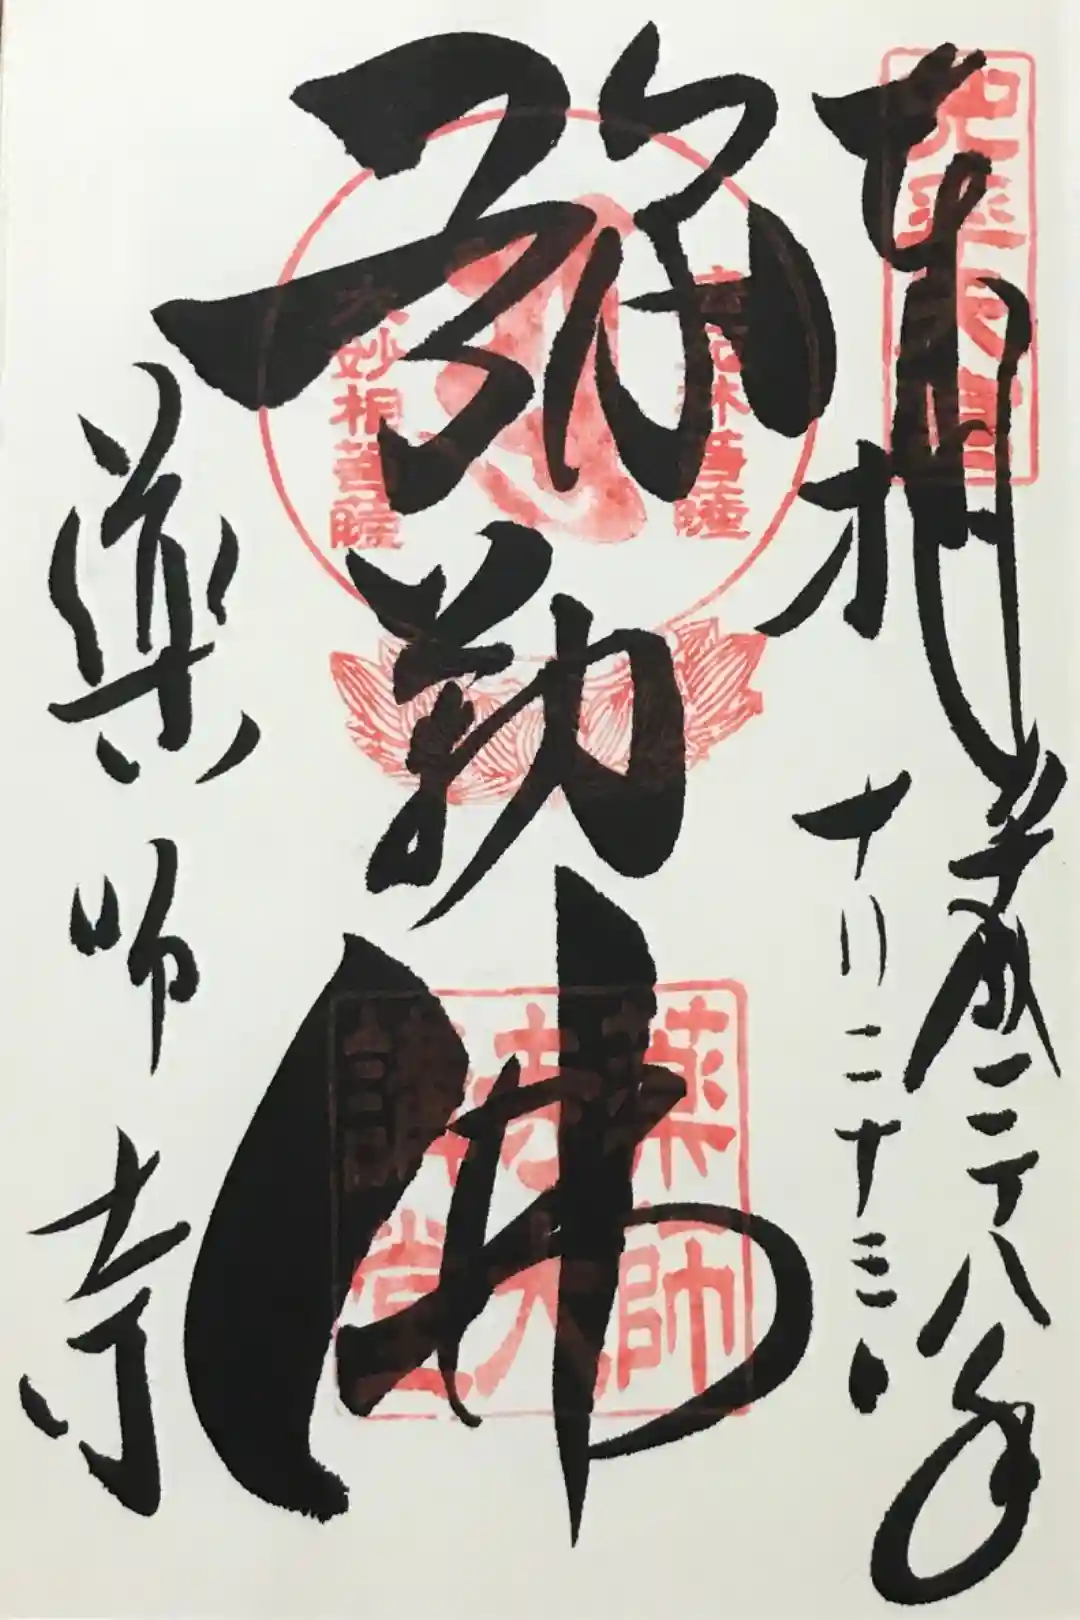 奉拝
平成二十八年
十月二十三日
弥勒佛
薬師寺
兜率天宮
法苑林菩薩
大妙相菩薩
薬師
寺大
講堂